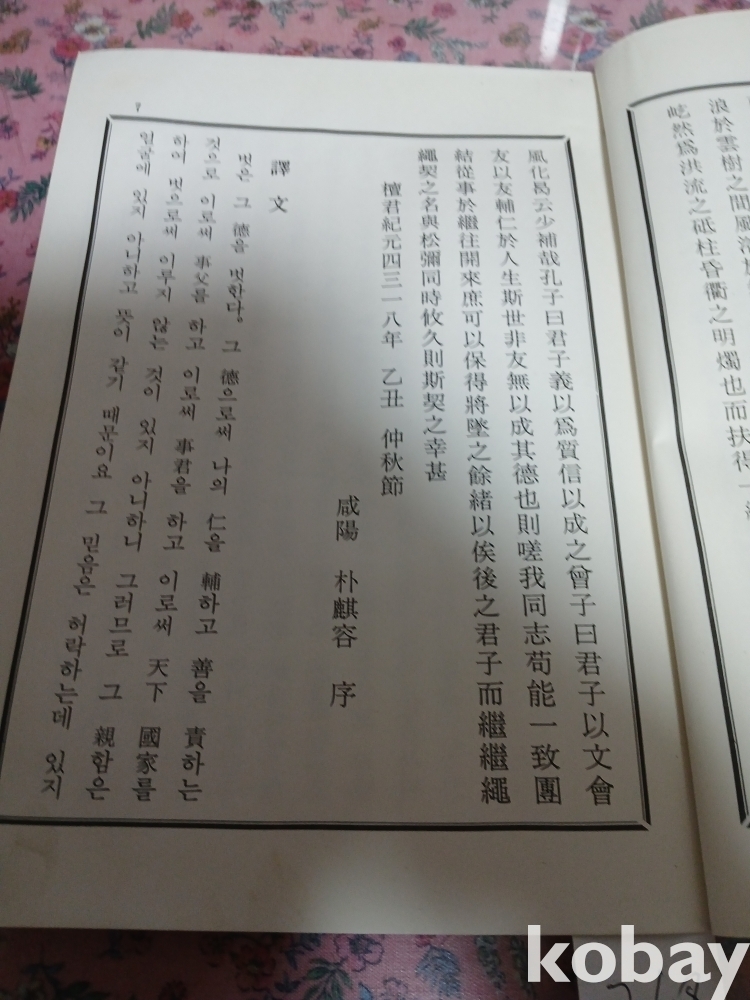 浪於雲樹之間風
屹然爲洪流之砥柱昏衢之明燭也而扶得一
風化曷云少補哉孔子曰君子義以爲質信以成之曾子曰君子以文會
友以友輔仁於人生斯世非友無以成其德也則嗟我同志苟能一致團
結從事於繼往開來庶可以保得將墜之餘緖以俟後之君子而繼繼繩
繩契之名與松彌同時攸久則斯契之幸甚
檀君紀元四三一八年 乙丑 仲秋節
咸陽 朴麒容 序
譯文
벗은 그 德을 벗한다. 그 德으로써 나의 仁을 輔하고 善을 責하는
것으로 이로써 事父를 하고 이로써 事君을 하고 이로써 天下 國家를
하여 벗으로써 이루지 않는 것이 있지 아니하니 그러므로 그 親함은
얼굴에 있지 아니하고 뜻이 같기 때문이요 그 믿음은 허락하는데 있지
7
kobay